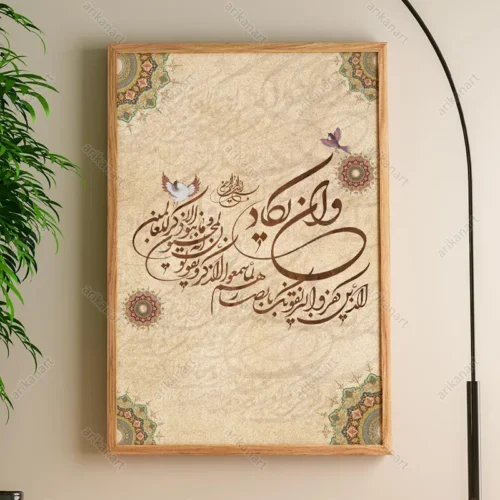 بسم الله الرحمن الرحیم
وان یکاد
الذین کفروا لیزلقونک بابصارهم
لما سمعوا الذکر و یقولون
انه لمجنون
و ما هو الا ذکر للعالمین
arikanart